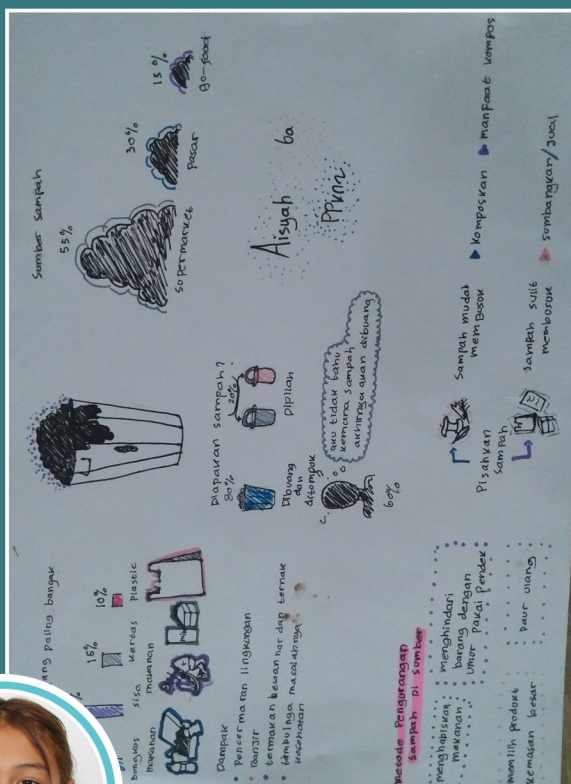 ang paling banyak
15%
10%
bungkus
makanan
sisa
makanan
kertas
Plastic
Dampak
Pencermaran lingkungan
Banjir
termakan hewan liar dan ternak
timbulnya masalahnya
kesehatan
Metode Pengurangan
Sampah di sumber
menghabiskan
makanan
menghindari
barang dengan
umur pakai pendek
memilih produk
kemasan besar
Daur ulang
Diapakan sampah?
80%
20%
Dibuang
dan
ditompok
Dipilah
60%
aku tidak tahu
kemana sampah
akhirnya akan dibuang
Pisahkan
Sampah
Sampah mudah
membusuk
Komposkan
manfaat kompos
Sampah sulit
membosok
sombangkan/jual
Sumber sampah
55%
supermarket
30%
pasar
15%
go-food
Aisyah 6a
PPKN2